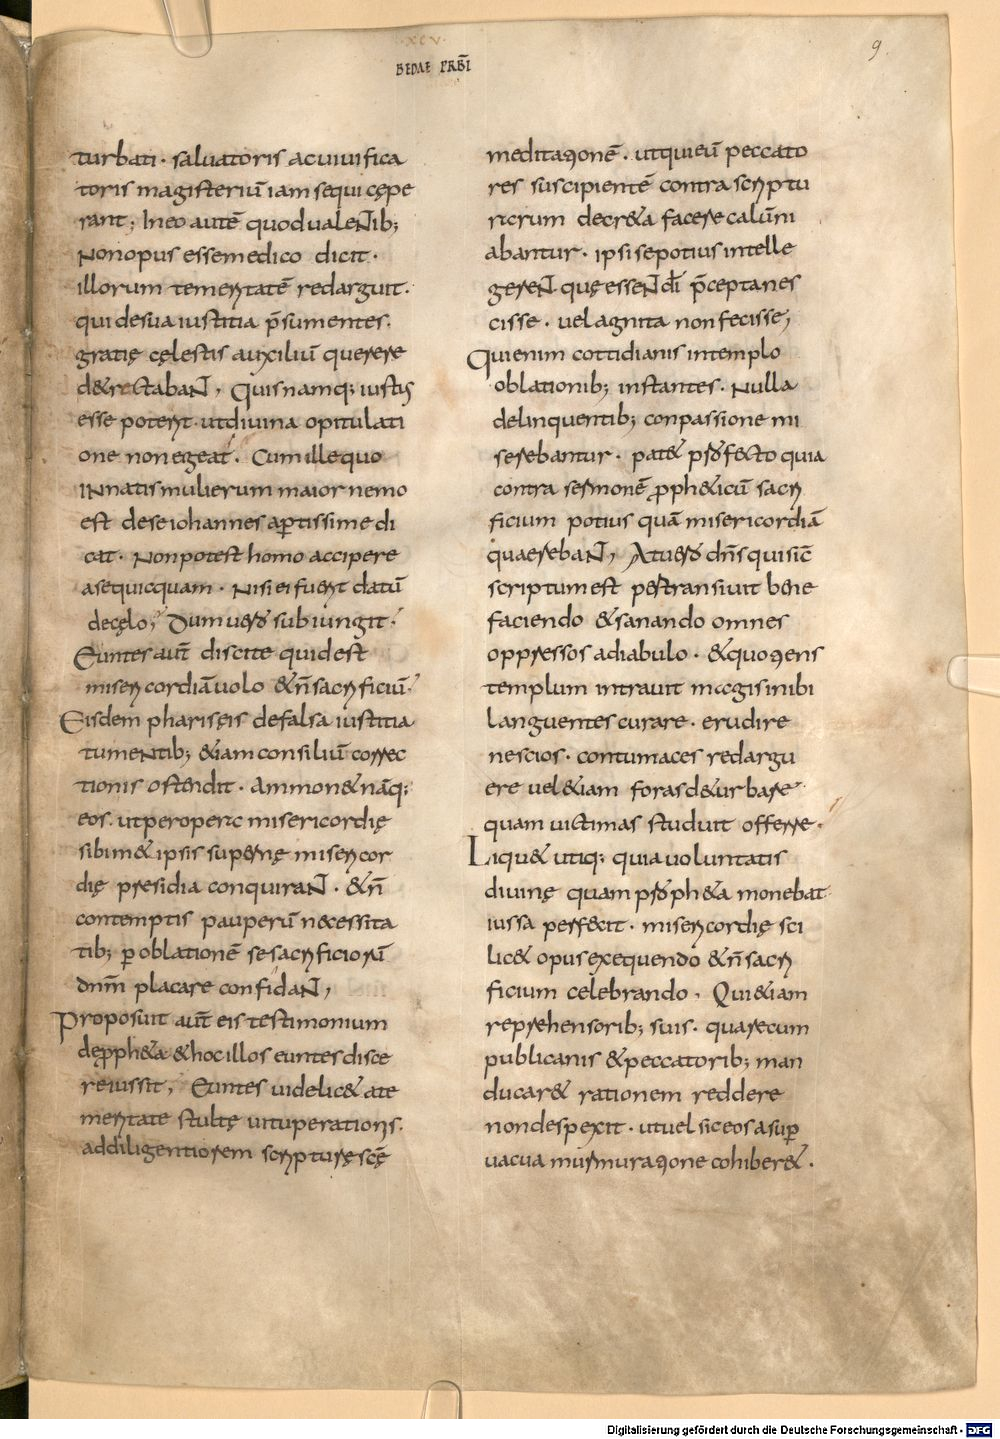 ·XCV·
BEDAE PRB̄I
9
turbati · saluatoris ac uiuifica
toris magisteriū iam sequi cępe
rant; In eo autē quod ualeNtib;
Non opus esse medico dicit ·
illorum temeritatē redarguit ·
qui de sua iustitia p̄sumentes ·
gratię cęlestis auxiliū querere
d&rectabaNt, Quis namq; iustus
esse poterit · ut diuina opitulati
one non egeat · Cum ille quo
IN natis mulierum maior nemo
est de se iohannes aptissime di
cat · Non potest homo accipere
a se quicquam · Nisi ei fuerit datū
de cęlo, Dum uero subiungit ·
Euntes aūt discite quid est
misericordiā uolo & n̄ sacrificiū ·
Eisdem pharisęis de falsa iustitia
tumeNtib; & iam consiliū correc
tionis ostendit · Ammon& nāq;
eos · ut per opera misericordię
sibim& ipsis supernę misericor
dię presidia conquiraNt · & n̄
contemptis pauperū necessita
tib; p oblationē se sacrificiorū
dn̄m placare confidaNt,
Proposuit aūt eis testimonium
de pph&a & hoc illos euntes disce
re iussit, Euntes uidelic& a te
meritate stultę uituperationis ·
ad diligentiorem scripturę scę̄
meditationē · ut qui eū peccato
res suscipientē contra scriptu
rarum decr&a facere calūni
abantur · ipsi se potius intelle
gereNt quę esseNt dī p̄cepta nes
cisse · uel agnita non fecisse,
Qui enim cottidianis in templo
oblationib; instantes · Nulla
delinquentib; conpassione mi
serebantur · pat& profecto quia
contra sermonē pph&icū sacri
ficium potius quā misericordiā
quaerebaNt, At uero dn̄s qui sic̄
scriptum est pertransiuit bene
faciendo & sanando omnes
oppressos a diabulo · & quotiens
templum intrauit magis inibi
languentes curare · erudire
nescios · contumaces redargu
ere uel &iam foras d&urbare
quam uictimas studuit offerre ·
Liqu& utiq; quia uoluntatis
diuinę quam proph&a monebat
iussa perfecit · misericordię sci
lic& opus exequendo & n̄ sacri
ficium celebrando · Qui &iam
reprehensorib; suis · quare cum
publicanis & peccatorib; man
ducar& rationem reddere
non despexit · ut uel sic eos a sup
uacua murmuratione cohiber& ·
Digitalisierung gefördert durch die Deutsche Forschungsgemeinschaft - DFG